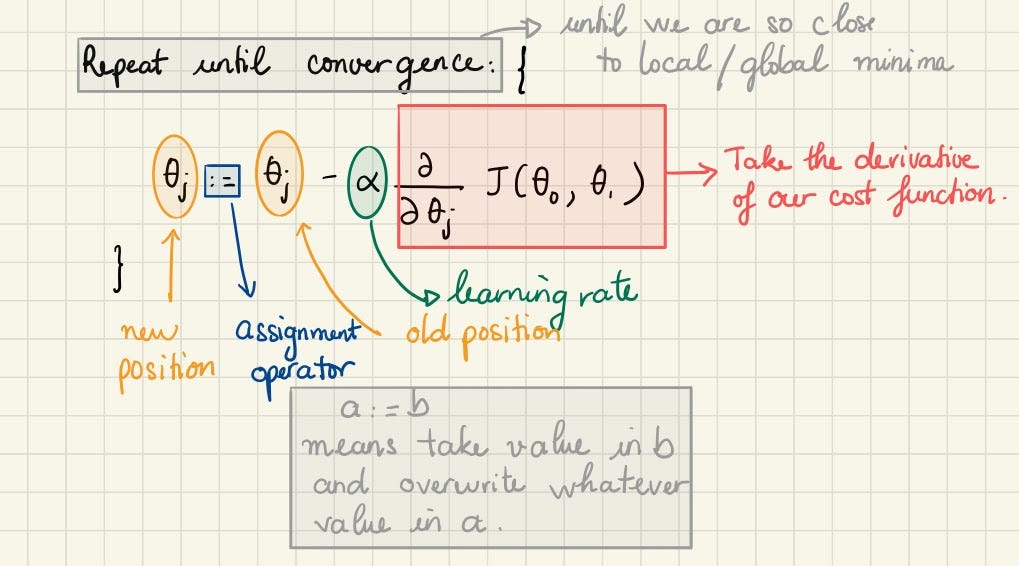 until we are so close
Repeat until convergence: {
to local/global minima
θj := θj - α ∂/∂θj J(θ₀, θ₁)
Take the derivative
of our cost function.
}
learning rate
new
position
assignment
operator
old position
a := b
means take value in b
and overwrite whatever
value in a.